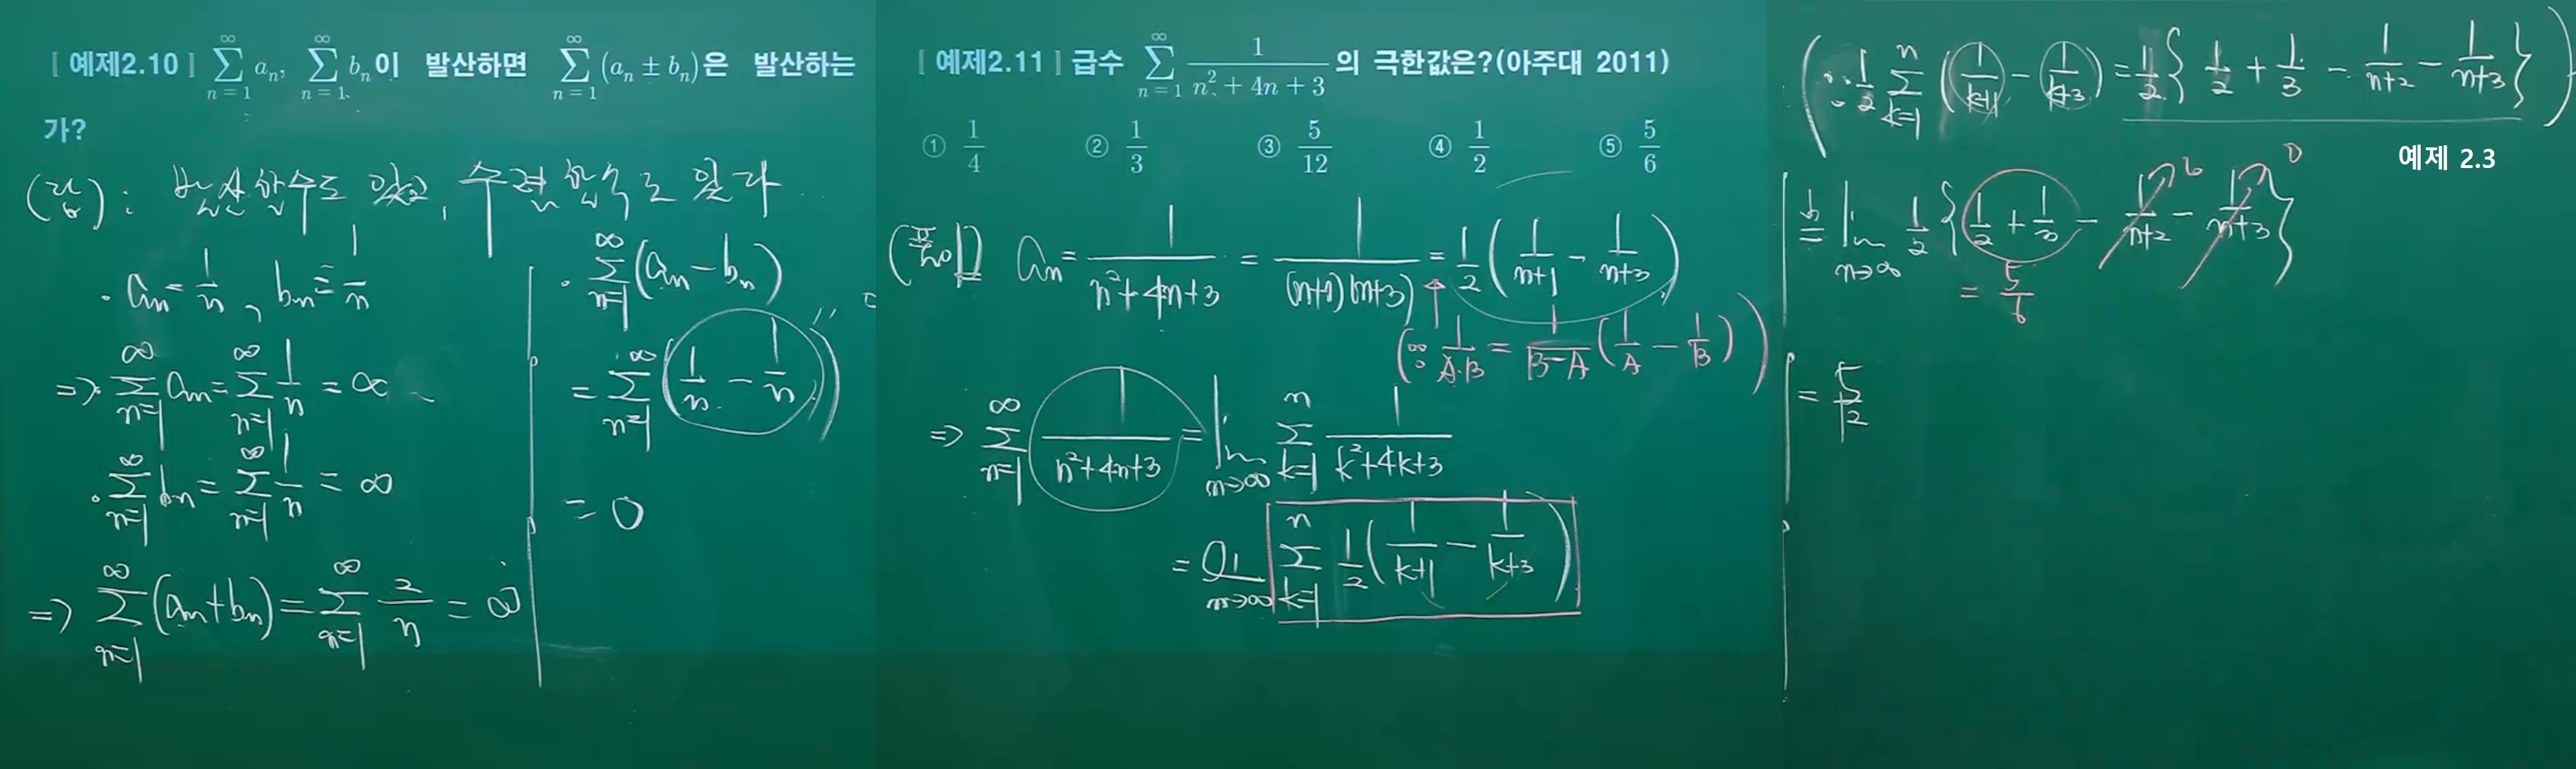 [ 예제2.10 ] \sum_{n=1}^{\infty} a_n, \sum_{n=1}^{\infty} b_n이 발산하면 \sum_{n=1}^{\infty} (a_n ± b_n)은 발산하는
가?
(답) : 발산할수도 있고, 수렴할 수도 있다.
· a_n = \frac{1}{n}, b_n = \frac{1}{n}
=> · \sum_{n=1}^{\infty} a_n = \sum_{n=1}^{\infty} \frac{1}{n} = ∞
· \sum_{n=1}^{\infty} b_n = \sum_{n=1}^{\infty} \frac{1}{n} = ∞
=> \sum_{n=1}^{\infty} (a_n + b_n) = \sum_{n=1}^{\infty} \frac{2}{n} = ∞
· \sum_{n=1}^{\infty} (a_n - b_n)
= \sum_{n=1}^{\infty} (\frac{1}{n} - \frac{1}{n})
= 0
[ 예제2.11 ] 급수 \sum_{n=1}^{\infty} \frac{1}{n^2 + 4n + 3} 의 극한값은?(아주대 2011)
① \frac{1}{4} ② \frac{1}{3} ③ \frac{5}{12} ④ \frac{1}{2} ⑤ \frac{5}{6}
(풀이) a_n = \frac{1}{n^2+4n+3} = \frac{1}{(n+1)(n+3)} = \frac{1}{2} (\frac{1}{n+1} - \frac{1}{n+3})
(∵ \frac{1}{A·B} = \frac{1}{B-A} (\frac{1}{A} - \frac{1}{B}))
=> \sum_{n=1}^{\infty} \frac{1}{n^2+4n+3} = \lim_{n→∞} \sum_{k=1}^{n} \frac{1}{k^2+4k+3}
= \lim_{n→∞} \sum_{k=1}^{n} \frac{1}{2} (\frac{1}{k+1} - \frac{1}{k+3})
(∵ \frac{1}{2} \sum_{k=1}^{n} (\frac{1}{k+1} - \frac{1}{k+3}) = \frac{1}{2} { \frac{1}{2} + \frac{1}{3} - \frac{1}{n+2} - \frac{1}{n+3} })
예제 2.3
= \lim_{n→∞} \frac{1}{2} { \frac{1}{2} + \frac{1}{3} - \frac{1}{n+2} - \frac{1}{n+3} }
= \frac{5}{6}
= \frac{5}{12}